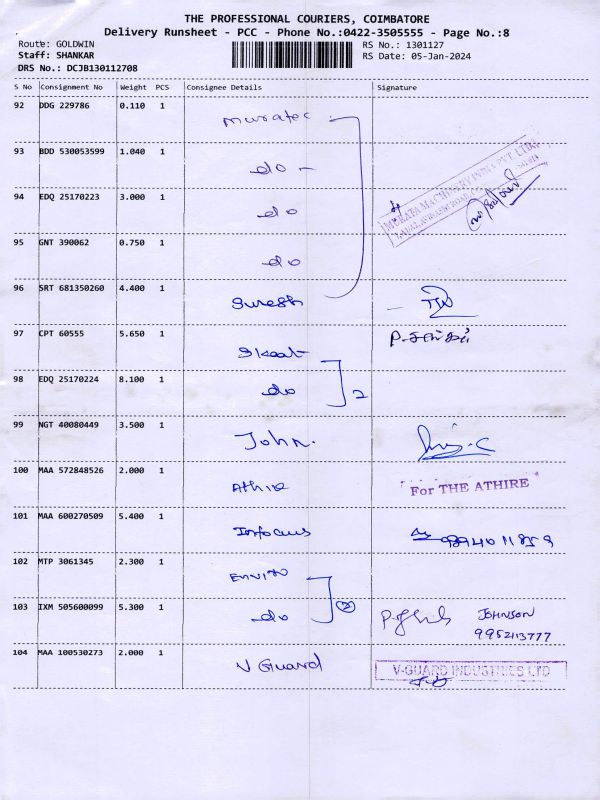 THE PROFESSIONAL COURIERS, COIMBATORE
Delivery Runsheet - PCC - Phone No.:0422-3505555 - Page No.:8
Route: GOLDWIN RS No.: 1301127
Staff: SHANKAR RS Date: 05-Jan-2024
DRS No.: DCJB130112708
S No Consignment No Weight PCS Consignee Details Signature
92 DDG 229786 0.110 1 Muratec
93 BDD 530053599 1.040 1 do -
94 EDQ 25170223 3.000 1 do MURATA MACHINERY INDIA PVT. LTD.
95 GNT 390062 0.750 1 do
96 SRT 681350260 4.400 1 Suresh
97 CPT 60555 5.650 1
98 EDQ 25170224 8.100 1 do 2
99 NGT 40080449 3.500 1 John.
100 MAA 572848526 2.000 1 Athire For THE ATHIRE
101 MAA 600270509 5.400 1 Infocus
102 MTP 3061345 2.300 1
103 IXM 505600099 5.300 1 do 2 JOHNSON
9952413777
104 MAA 100530273 2.000 1 V Guard V-GUARD INDUSTRIES LTD